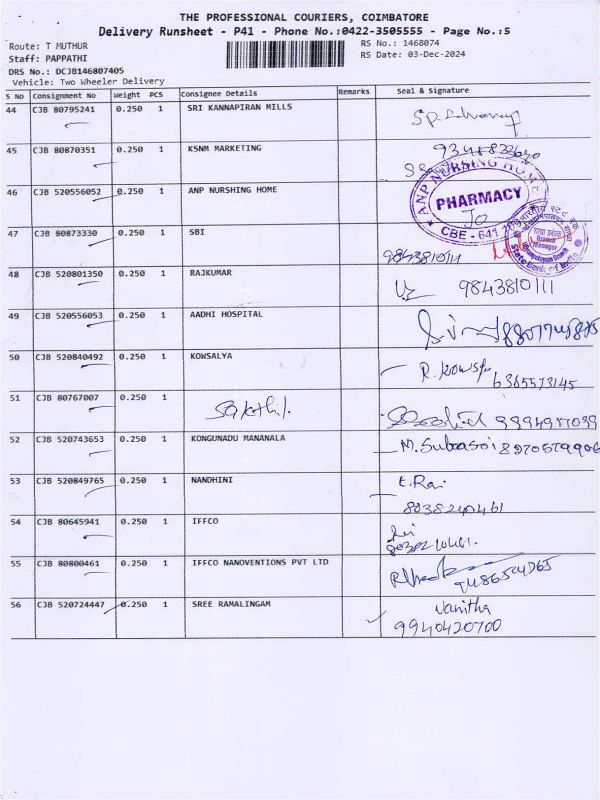 THE PROFESSIONAL COURIERS, COIMBATORE
Delivery Runsheet - P41 - Phone No.:0422-3505555 - Page No.:5
Route: T MUTHUR
RS No.: 1468074
Staff: PAPPATHI
RS Date: 03-Dec-2024
DRS No.: DCJB146807405
Vehicle: Two Wheeler Delivery
S No Consignment No Weight PCS Consignee Details Remarks Seal & Signature
44 CJB 80795241 0.250 1 SRI KANNAPIRAN MILLS
45 CJB 80870351 0.250 1 KSNM MARKETING
46 CJB 520556052 0.250 1 ANP NURSHING HOME
ANP NURSING HOME
PHARMACY
CBE - 641
47 CJB 80873330 0.250 1 SBI
9843810111
State Bank of India
Branch Manager
48 CJB 520801350 0.250 1 RAJKUMAR
9843810111
49 CJB 520556053 0.250 1 AADHI HOSPITAL
50 CJB 520840492 0.250 1 KOWSALYA
6365573145
51 CJB 80767007 0.250 1 Sakthi.
52 CJB 520743653 0.250 1 KONGUNADU MANANALA
53 CJB 520849765 0.250 1 NANDHINI
8038240461
54 CJB 80645941 0.250 1 IFFCO
55 CJB 80800461 0.250 1 IFFCO NANOVENTIONS PVT LTD
56 CJB 520724447 0.250 1 SREE RAMALINGAM
Vanitha
9940420700